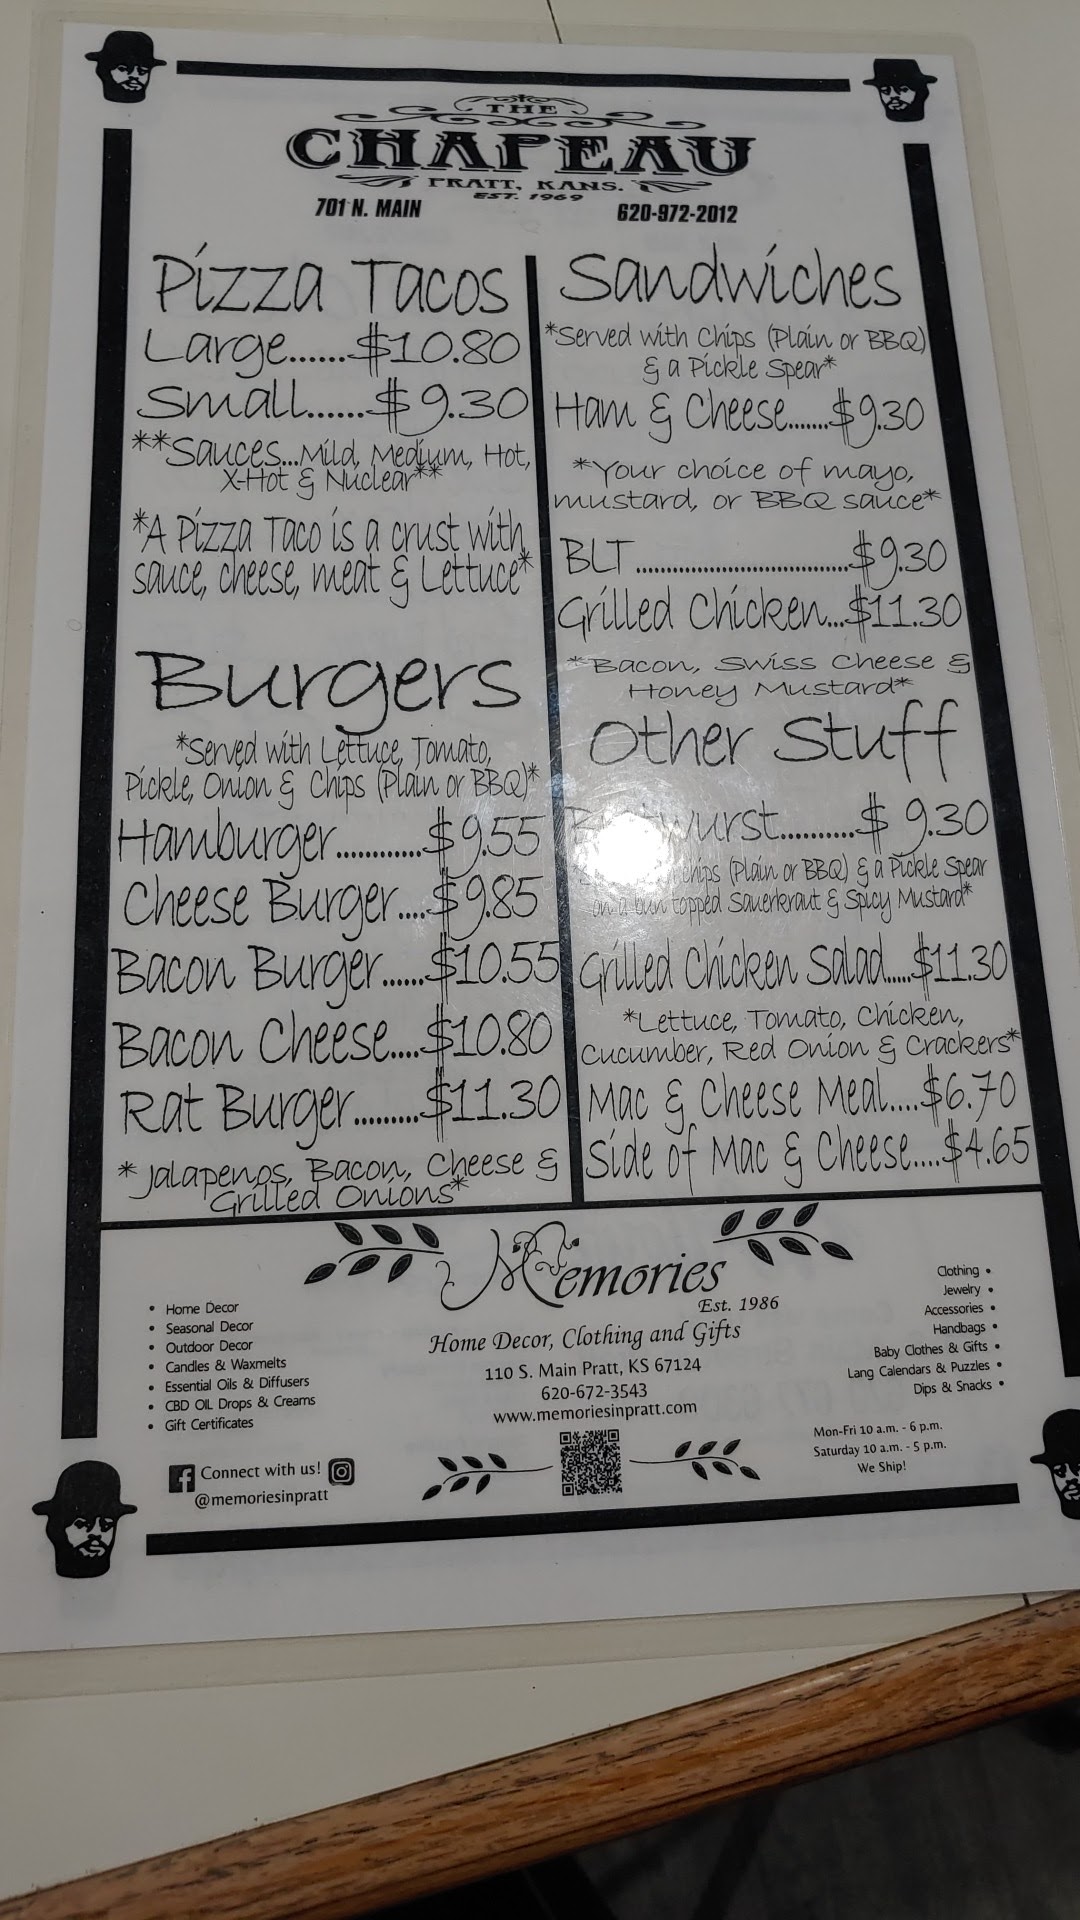 THE
CHAPEAU
PRATT, KANS.
EST. 1969
701 N. MAIN
620-972-2012
Pizza Tacos
Large......$10.80
Small......$9.30
**Sauces...Mild, Medium, Hot,
X-Hot & Nuclear**
*A Pizza Taco is a crust with
sauce, cheese, meat & Lettuce*
Burgers
*Served with Lettuce, Tomato,
Pickle, Onion & Chips (Plain or BBQ)*
Hamburger............$9.55
Cheese Burger....$9.85
Bacon Burger......$10.55
Bacon Cheese....$10.80
Rat Burger.........$11.30
*Jalapenos, Bacon, Cheese &
Grilled Onions*
Sandwiches
*Served with Chips (Plain or BBQ)
& a Pickle Spear*
Ham & Cheese.......$9.30
*Your choice of mayo,
mustard, or BBQ sauce*
BLT...................................$9.30
Grilled Chicken...$11.30
*Bacon, Swiss Cheese &
Honey Mustard*
Other Stuff
Bratwurst..........$ 9.30
Chips (Plain or BBQ) & a Pickle Spear
on a bun topped Sauerkraut & Spicy Mustard*
Grilled Chicken Salad.....$11.30
*Lettuce, Tomato, Chicken,
Cucumber, Red Onion & Crackers*
Mac & Cheese Meal....$6.70
Side of Mac & Cheese....$4.65
Memories
Est. 1986
Home Decor, Clothing and Gifts
110 S. Main Pratt, KS 67124
620-672-3543
www.memoriesinpratt.com
• Home Decor
• Seasonal Decor
• Outdoor Decor
• Candles & Waxmelts
• Essential Oils & Diffusers
• CBD OIL Drops & Creams
• Gift Certificates
Connect with us!
@memoriesinpratt
Clothing •
Jewelry •
Accessories •
Handbags •
Baby Clothes & Gifts •
Lang Calendars & Puzzles •
Dips & Snacks •
Mon-Fri 10 a.m. - 6 p.m.
Saturday 10 a.m. - 5 p.m.
We Ship!